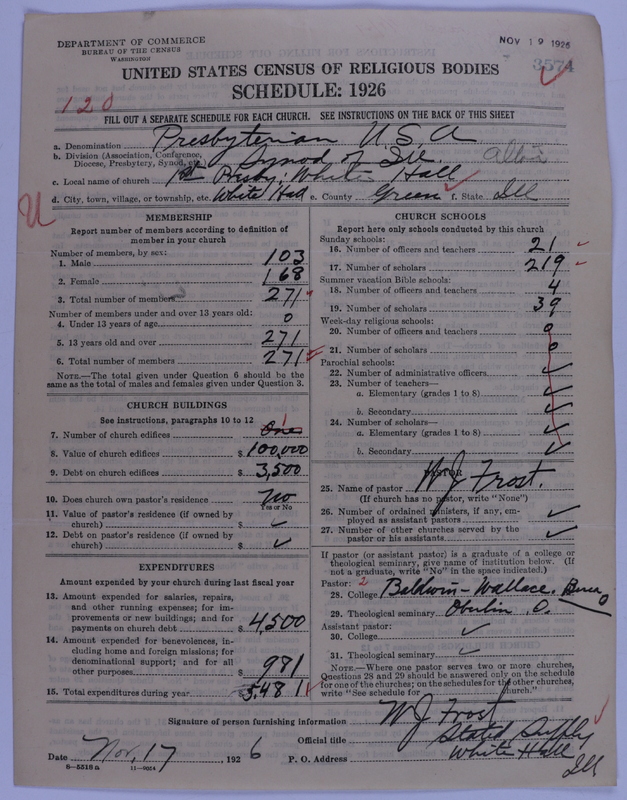 DEPARTMENT OF COMMERCE
BUREAU OF THE CENSUS
WASHINGTON
NOV 19 1926
3574
UNITED STATES CENSUS OF RELIGIOUS BODIES
SCHEDULE: 1926
120
FILL OUT A SEPARATE SCHEDULE FOR EACH CHURCH. SEE INSTRUCTIONS ON THE BACK OF THIS SHEET
a. Denomination Presbyterian U S A
b. Division (Association, Conference, Diocese, Presbytery, Synod, etc.) Synod of Ill. Alton
c. Local name of church 1st Presby. White Hall
d. City, town, village, or township, etc. White Hall e. County Green f. State Ill
MEMBERSHIP
Report number of members according to definition of member in your church
Number of members, by sex:
1. Male 103
2. Female 168
3. Total number of members 271
Number of members under and over 13 years old:
4. Under 13 years of age 0
5. 13 years old and over 271
6. Total number of members 271
NOTE.—The total given under Question 6 should be the same as the total of males and females given under Question 3.
CHURCH BUILDINGS
See instructions, paragraphs 10 to 12
7. Number of church edifices One 1
8. Value of church edifices $ 100,000
9. Debt on church edifices $ 3,500
10. Does church own pastor's residence No
Yes or No
11. Value of pastor's residence (if owned by church) $ ✓
12. Debt on pastor's residence (if owned by church) $ ✓
EXPENDITURES
Amount expended by your church during last fiscal year
13. Amount expended for salaries, repairs, and other running expenses; for improvements or new buildings; and for payments on church debt $ 4,500
14. Amount expended for benevolences, including home and foreign missions; for denominational support; and for all other purposes $ 981
15. Total expenditures during year $ 5,481
CHURCH SCHOOLS
Report here only schools conducted by this church
Sunday schools:
16. Number of officers and teachers 21
17. Number of scholars 219
Summer vacation Bible schools:
18. Number of officers and teachers 4
19. Number of scholars 39
Week-day religious schools:
20. Number of officers and teachers 0
21. Number of scholars 0
Parochial schools:
22. Number of administrative officers ✓
23. Number of teachers—
a. Elementary (grades 1 to 8) ✓
b. Secondary ✓
24. Number of scholars—
a. Elementary (grades 1 to 8) ✓
b. Secondary ✓
PASTOR
25. Name of pastor W J Frost.
(If church has no pastor, write "None")
26. Number of ordained ministers, if any, employed as assistant pastors ✓
27. Number of other churches served by the pastor or his assistants ✓
If pastor (or assistant pastor) is a graduate of a college or theological seminary, give name of institution below. (If not a graduate, write "No" in the space indicated.)
Pastor: 2
28. College Baldwin-Wallace. Berea O
29. Theological seminary Oberlin O.
Assistant pastor:
30. College ✓
31. Theological seminary ✓
NOTE.—Where one pastor serves two or more churches, Questions 28 and 29 should be answered only on the schedule for one of the churches; on the schedules for the other churches, write "See schedule for church."
Signature of person furnishing information W J Frost
Official title Stated Supply
Date Nov, 17 1926 P. O. Address White Hall Ill
8-5518a 11-9024